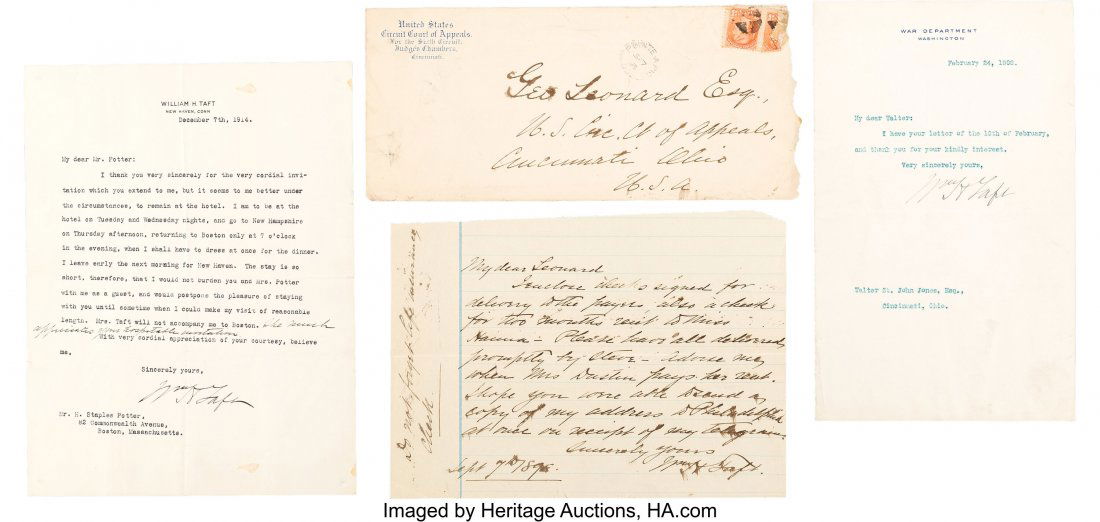 WILLIAM H. TAFT
NEW HAVEN, CONN
December 7th, 1914.
My dear Mr. Potter:
I thank you very sincerely for the very cordial invi-
tation which you extend to me, but it seems to me better under
the circumstances, to remain at the hotel. I am to be at the
hotel on Tuesday and Wednesday nights, and go to New Hampshire
on Thursday afternoon, returning to Boston only at 7 o'clock
in the evening, when I shall have to dress at once for the dinner.
I leave early the next morning for New Haven. The stay is so
short, therefore, that I would not burden you and Mrs. Potter
with me as a guest, and would postpone the pleasure of staying
with you until sometime when I could make my visit of reasonable
length. Mrs. Taft will not accompany me to Boston. She much
appreciates your hospitable invitation
With very cordial appreciation of your courtesy, believe
me,
Sincerely yours,
Wm H Taft
Mr. H. Staples Potter,
82 Commonwealth Avenue,
Boston, Massachusetts.
United States
Circuit Court of Appeals.
For the Sixth Circuit.
Judges Chambers,
Cincinnati.
Geo Leonard Esq.,
U.S. Circ. Ct of Appeals,
Cincinnati Ohio
U.S.A.
My dear Leonard
I enclose checks signed for
delivery to the payees also a check
for two months rent to Miss
Hanna - Please have all delivered
promptly by Cleve - Advise me
when Mrs Dustin pays her rent.
I hope you were able to send a
copy of my address to Philadelphia
at once on receipt of my telegram
Sincerely Yours
Wm H Taft.
Sept 7th
Do not forget life insurance
check
WAR DEPARTMENT
WASHINGTON
February 24, 1908.
My dear Walter:
I have your letter of the 10th of February,
and thank you for your kindly interest.
Very sincerely yours,
Wm H Taft
Walter St. John Jones, Esq.,
Cincinnati, Ohio.
Imaged by Heritage Auctions, HA.com